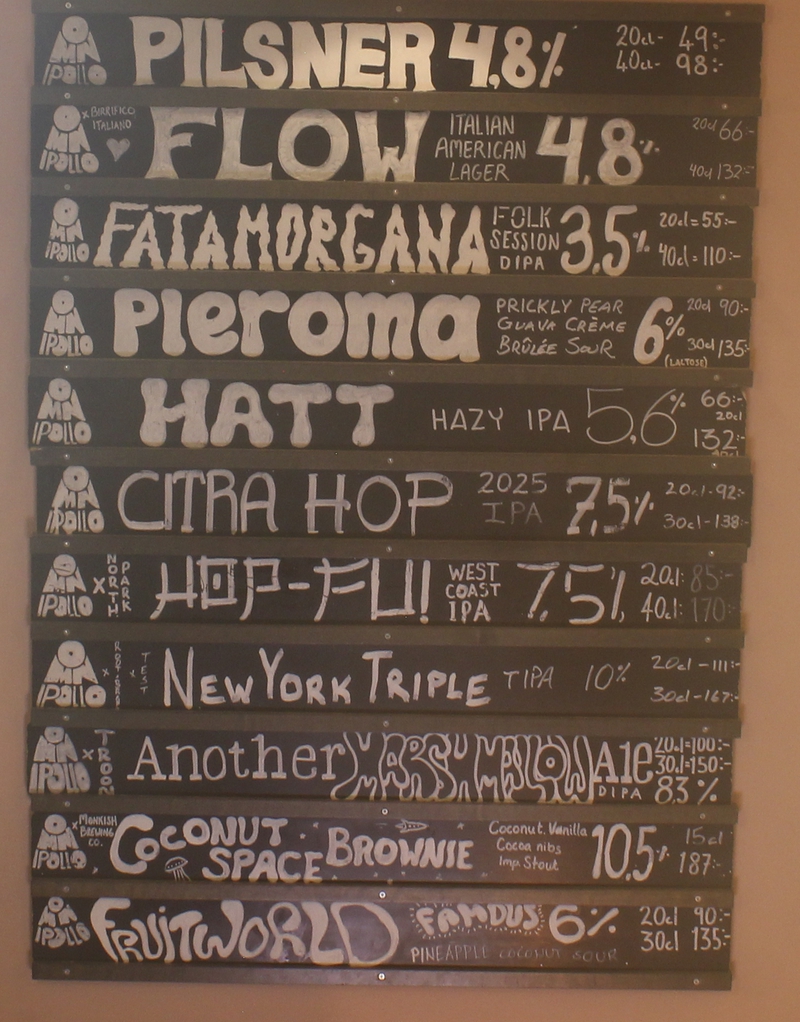 OMNIPOLLO PILSNER 4,8% 20cl- 49:-
40cl- 98:-
OMNIPOLLO x BIRRIFICO ITALIANO FLOW ITALIAN AMERICAN LAGER 4,8% 20cl 66:-
40cl 132:-
OMNIPOLLO FATAMORGANA FOLK SESSION DIPA 3,5% 20cl=55:-
40cl=110:-
OMNIPOLLO Pleroma PRICKLY PEAR GUAVA CRÈME BRÛLÉE SOUR 6% (LACTOSE) 20cl 90:-
30cl 135:-
OMNIPOLLO HATT HAZY IPA 5,6% 66:- 20cl
132:- 40cl
OMNIPOLLO CITRA HOP 2025 IPA 7,5% 20cl-92:-
30cl-138:-
OMNIPOLLO x NORTH PARK HOP-FU! WEST COAST IPA 7,5% 20cl: 85:-
40cl: 170:-
OMNIPOLLO x TEST NEW YORK TRIPLE TIPA 10% 20cl-111:-
30cl-167:-
OMNIPOLLO x TROON Another MARSHMELLOW Ale DIPA 20cl=100:-
30cl=150:-
8,3%
OMNIPOLLO x MONKISH BREWING CO. COCONUT SPACE BROWNIE Coconut. Vanilla Cocoa nibs Imp. Stout 10,5% 15cl
187:-
OMNIPOLLO FRUITWORLD FAMOUS 6% PINEAPPLE COCONUT SOUR 20cl 90:-
30cl 135:-